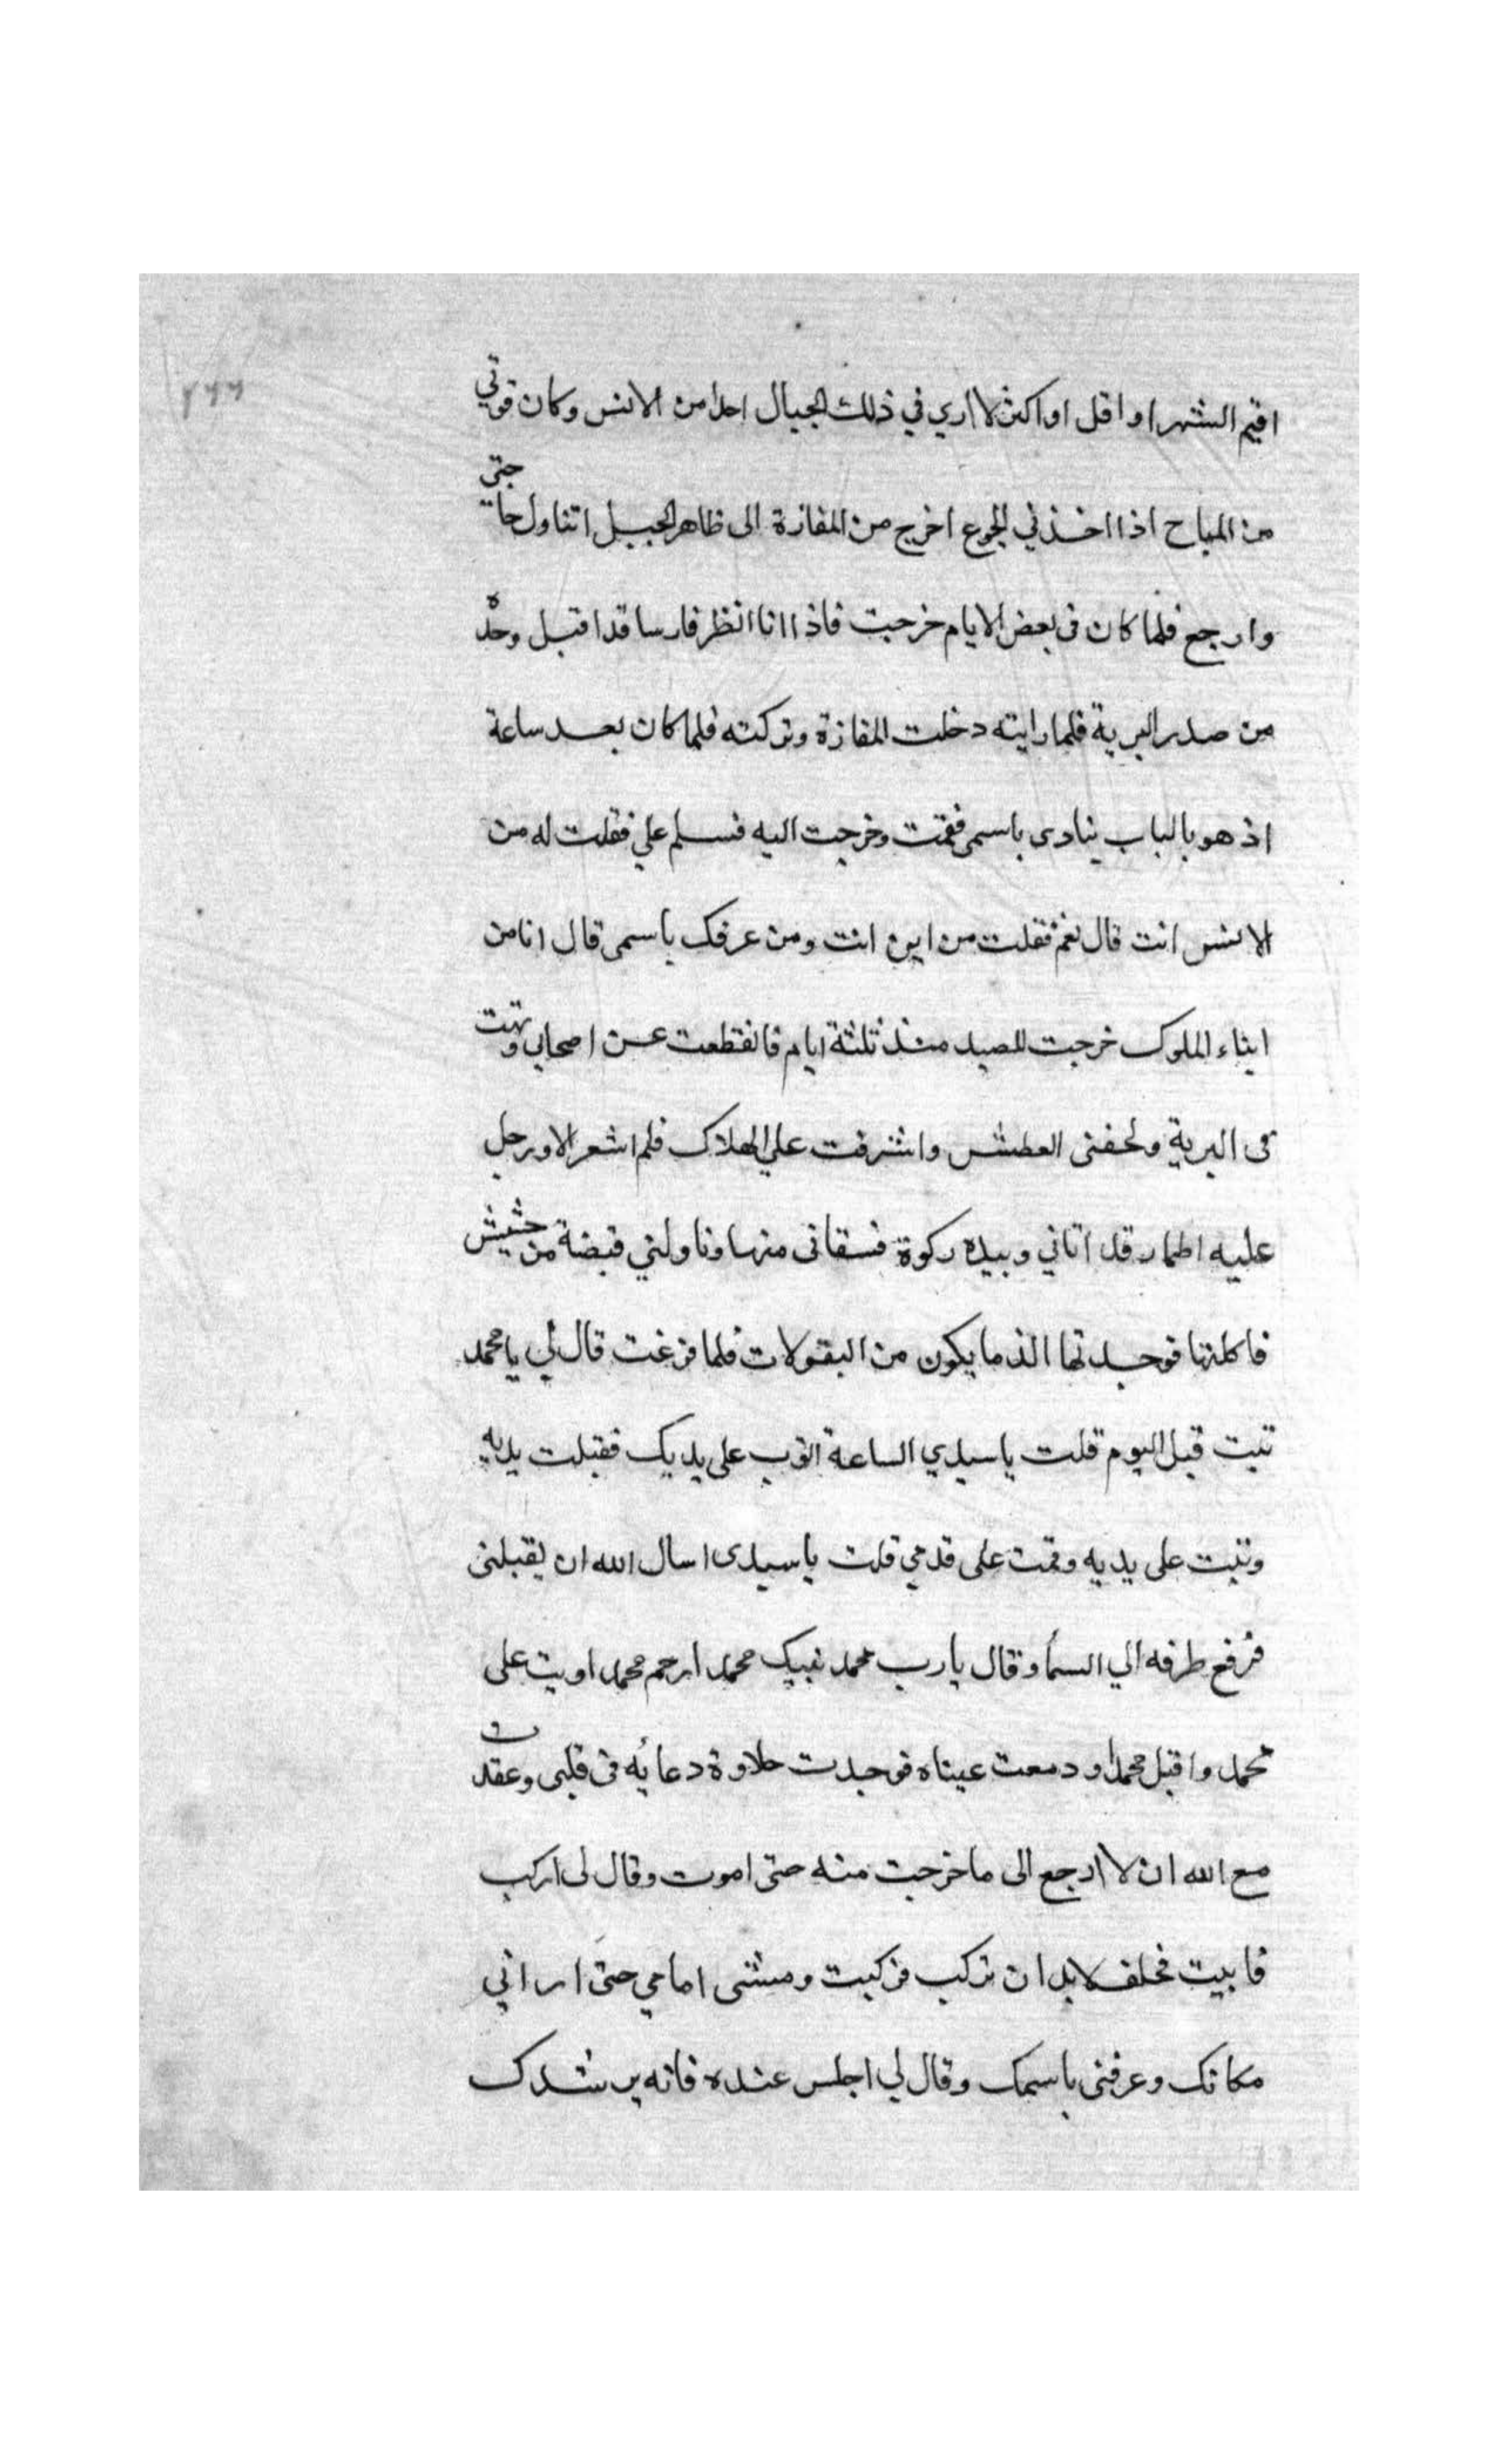 ٢٦٦
اقيم الشهر او اقل او اكثر لا اري في ذلك الجبال احدا من الانس وكان قوتي
من المباح اذا اخذني الجوع اخرج من المفازة الى ظاهر الجبل اتناول حاجتي
وارجع فلما كان فى بعض الايام خرجت فاذا انا انظر فارسا قد اقبل وحده
من صدر البرية فلما رايته دخلت المفازة وتركته فلما كان بعد ساعة
اذ هو بالباب ينادى باسمى فقمت وخرجت اليه فسلم علي فقلت له من
الانس انت قال نعم فقلت من اين انت ومن عرفك باسمى قال انا من
ابناء الملوك خرجت للصيد منذ ثلثة ايام فانقطعت عن اصحابى وتهت
فى البرية ولحقنى العطش واشرفت علي الهلاك فلم اشعر الا ورجل
عليه اطمار قد اتاني وبيده ركوة فسقانى منها وناولني قبضة من حشيش
فاكلتها فوجدتها الذ ما يكون من البقولات فلما فرغت قال لي يا محمد
تبت قبل اليوم قلت يا سيدي الساعة اتوب على يديك فقبلت يديه
وتبت على يديه وقمت على قدمي قلت يا سيدى اسال الله ان يقبلنى
فرفع طرفه الي السما وقال يا رب محمد نبيك محمد ارحم محمد اوتب على
محمد واقبل محمدا ودمعت عيناه فوجدت حلاوة دعائه فى قلبى وعقدت
مع الله ان لا ارجع الى ما خرجت منه حتى اموت وقال لى اركب
فابيت فحلف لابد ان تركب فركبت ومشى امامي حتى ارانى
مكانك وعرفنى باسمك وقال لي اجلس عنده فانه يرشدك